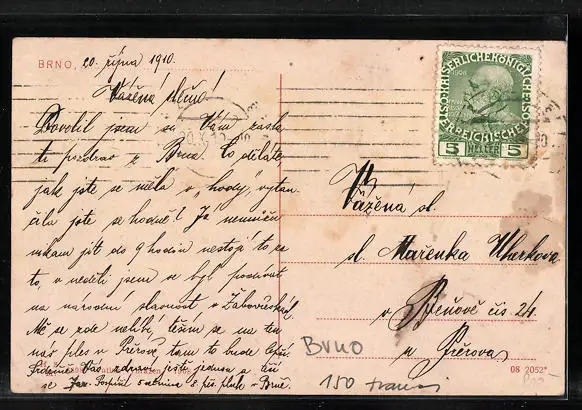 BRNO, 20. října 1910.
Vážená slečno!
Dovolil jsem si Vám zasla
ti pozdrav z Brna. Co děláte,
jak jste se měla v hody, vytan
čila jste se hodně? Já nemusím
nikam jít do 9 hodin nestojí to za
to, v neděli jsem se byl podívat
na národní slavnost v Žabovřeskách
Mě se zde nelíbí, těším se na ten
náš ples v Přerově, tam to bude lepší.
Srdečně Vás zdraví ještě jednou a těší
se Jar. Pospíšil 8. pěš. pluk v Brně.
KAISERLICHE KÖNIGLICHE
ÖSTERREICHISCHE
5 HELLER 5
Vážená sl.
sl. Mařenka Uherkova
v Beňově čís 24
u Přerova
Brno
08 2052
150